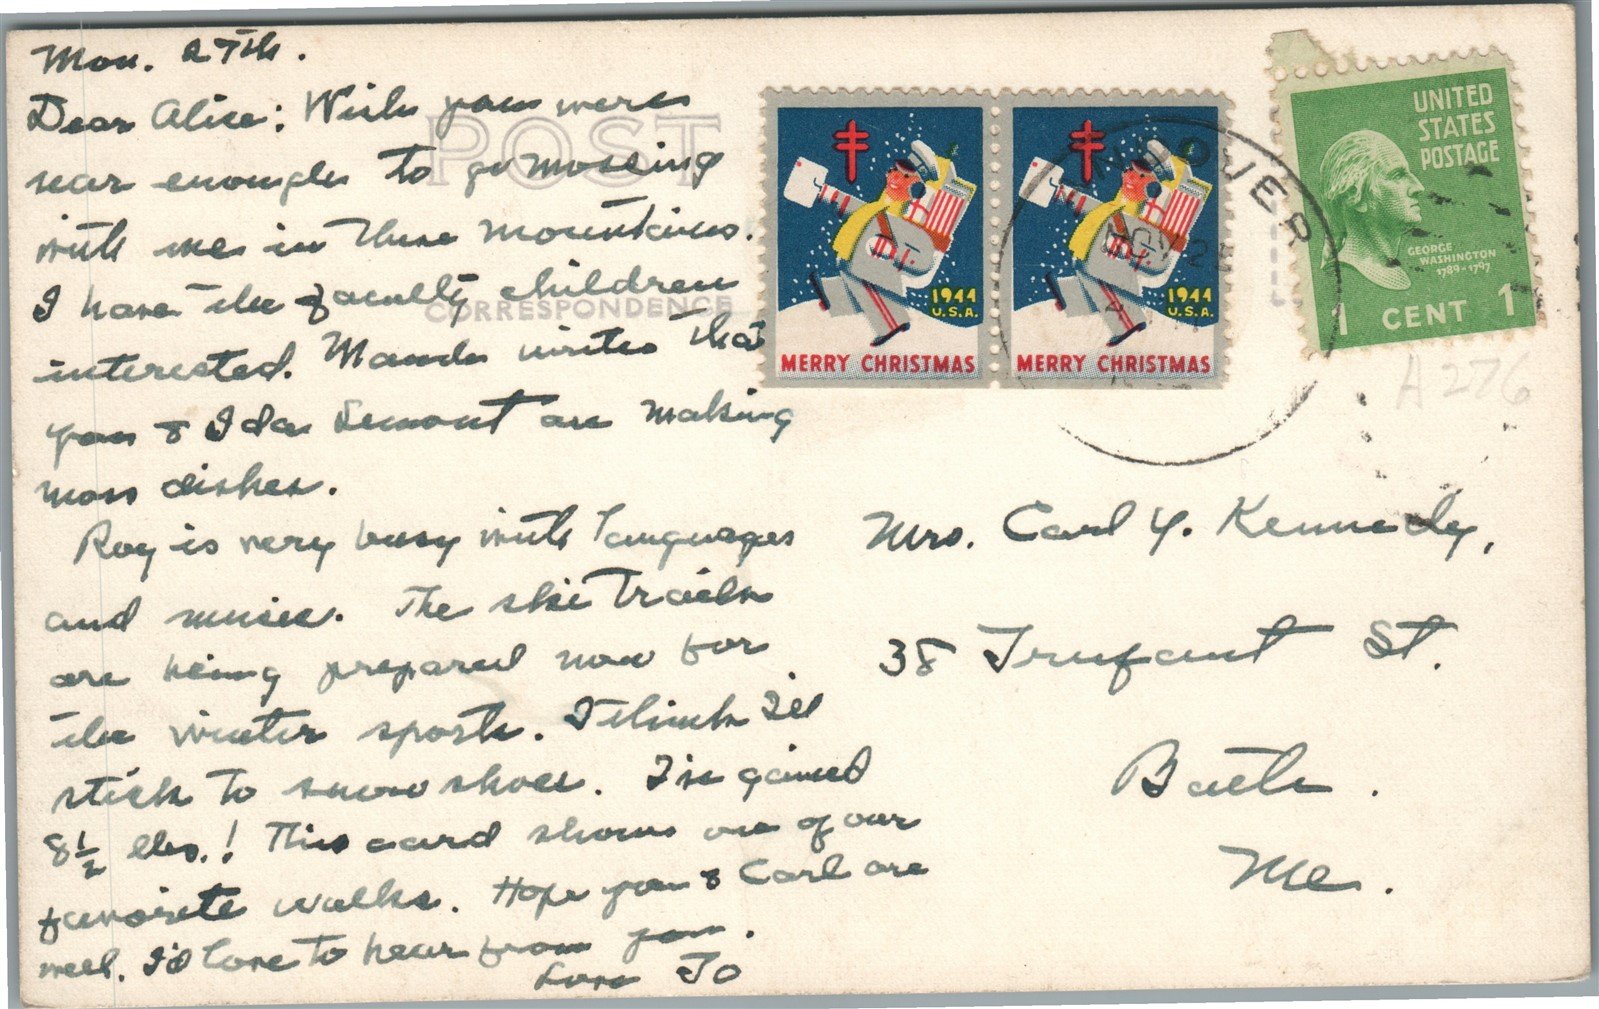 Mon. 27th.
Dear Alice: Wish you were
near enough to go mossing
with me in these mountains.
I have the faculty children
interested. Maude writes that
you & Ida Lemont are making
moss dishes.
Roy is very busy with languages
and music. The ski trails
are being prepared now for
the winter sports. I think I'll
stick to snow shoes. I've gained
8½ lbs.! This card shows one of our
favorite walks. Hope you & Carl are
well. I'd love to hear from you.
Love Jo
POST
CORRESPONDENCE
1944
U.S.A.
MERRY CHRISTMAS
1944
U.S.A.
MERRY CHRISTMAS
NOV 2
UNITED
STATES
POSTAGE
GEORGE
WASHINGTON
1789-1797
1 CENT 1
A276
Mrs. Carl Y. Kennedy,
38 Trufant St.
Bath.
Me.